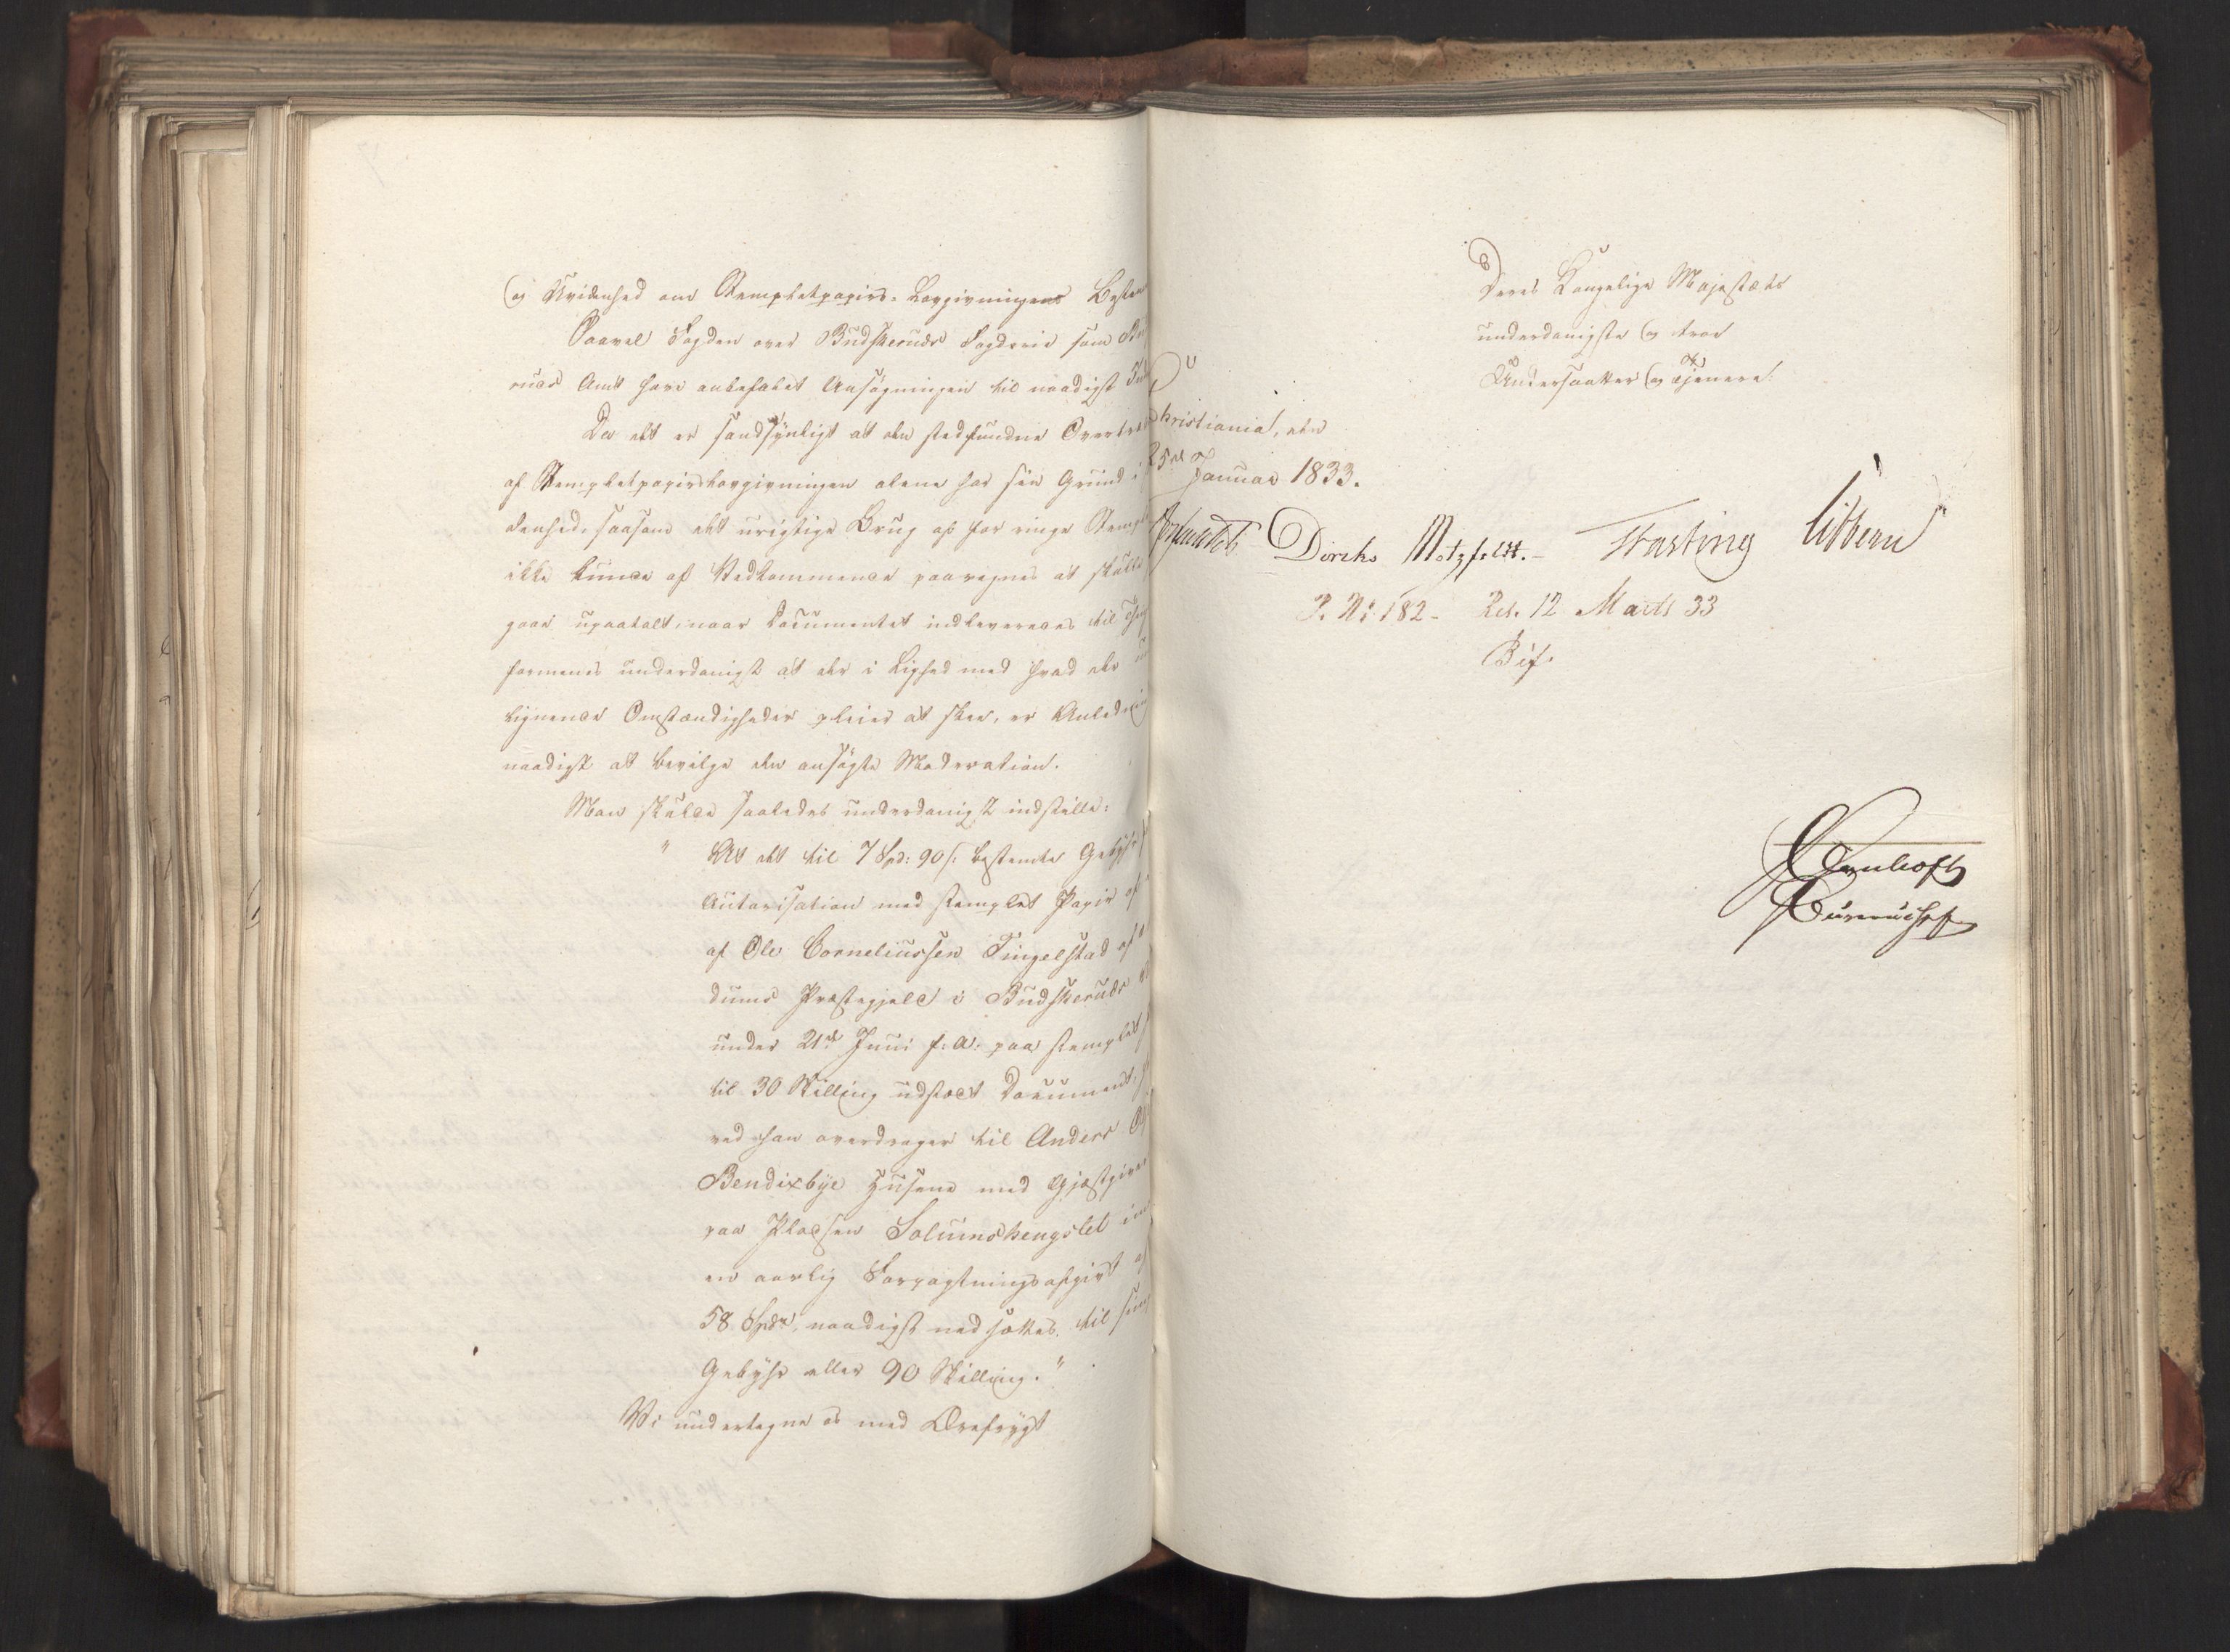 og Uvidenhed om Stempletpapirs-Lovgivningens
Saavel Fogden over Budskeruds Fogderie som
ruds Amt have anbefalet Ansøgningen til naadigst
Da det er sandsynligt at den stedfundne
af Stempletpapirslovgivningen alene har sin Grund i
denhed, saasom det urigtige Brug af for ringe
ikke kunde af Vedkommende paaregnes at skulle
gaae upaatalt, naar Documentet indleveredes til
formenes underdanigst at der i Lighed med hvad der
lignende Omstændigheder pleier at skee, er
naadigst at bevilge den ansøgte Moderation.
Man skulde saaledes underdanigst indstille:
" At det til 7 Spd: 90 s: bestemte
Autorisation med stemplet Papir af
af Ole Corneliussen Tingelstad af
dums Præstegjeld i Budskeruds
under 21de Juni f: A: paa stemplet
til 30 Skilling udstædt Document,
ved han overdrager til Anders
Bendixbye Husene med
paa Pladsen Solumshengslet
en aarlig Forpagtningsafgivt af
58 Spdr, naadigst nedsættes til
Gebyhr eller 90 Skilling."
Vi undertegne os med Ærefrygt
Deres Kongelige Majestæts
underdanigste og troe
Undersaatter og Tjenere.
Christiania, den
25de Januar 1833.
Diriks Motzfeldt. Fasting
P. No 182 - Res. 12 Marts 33
Bif.